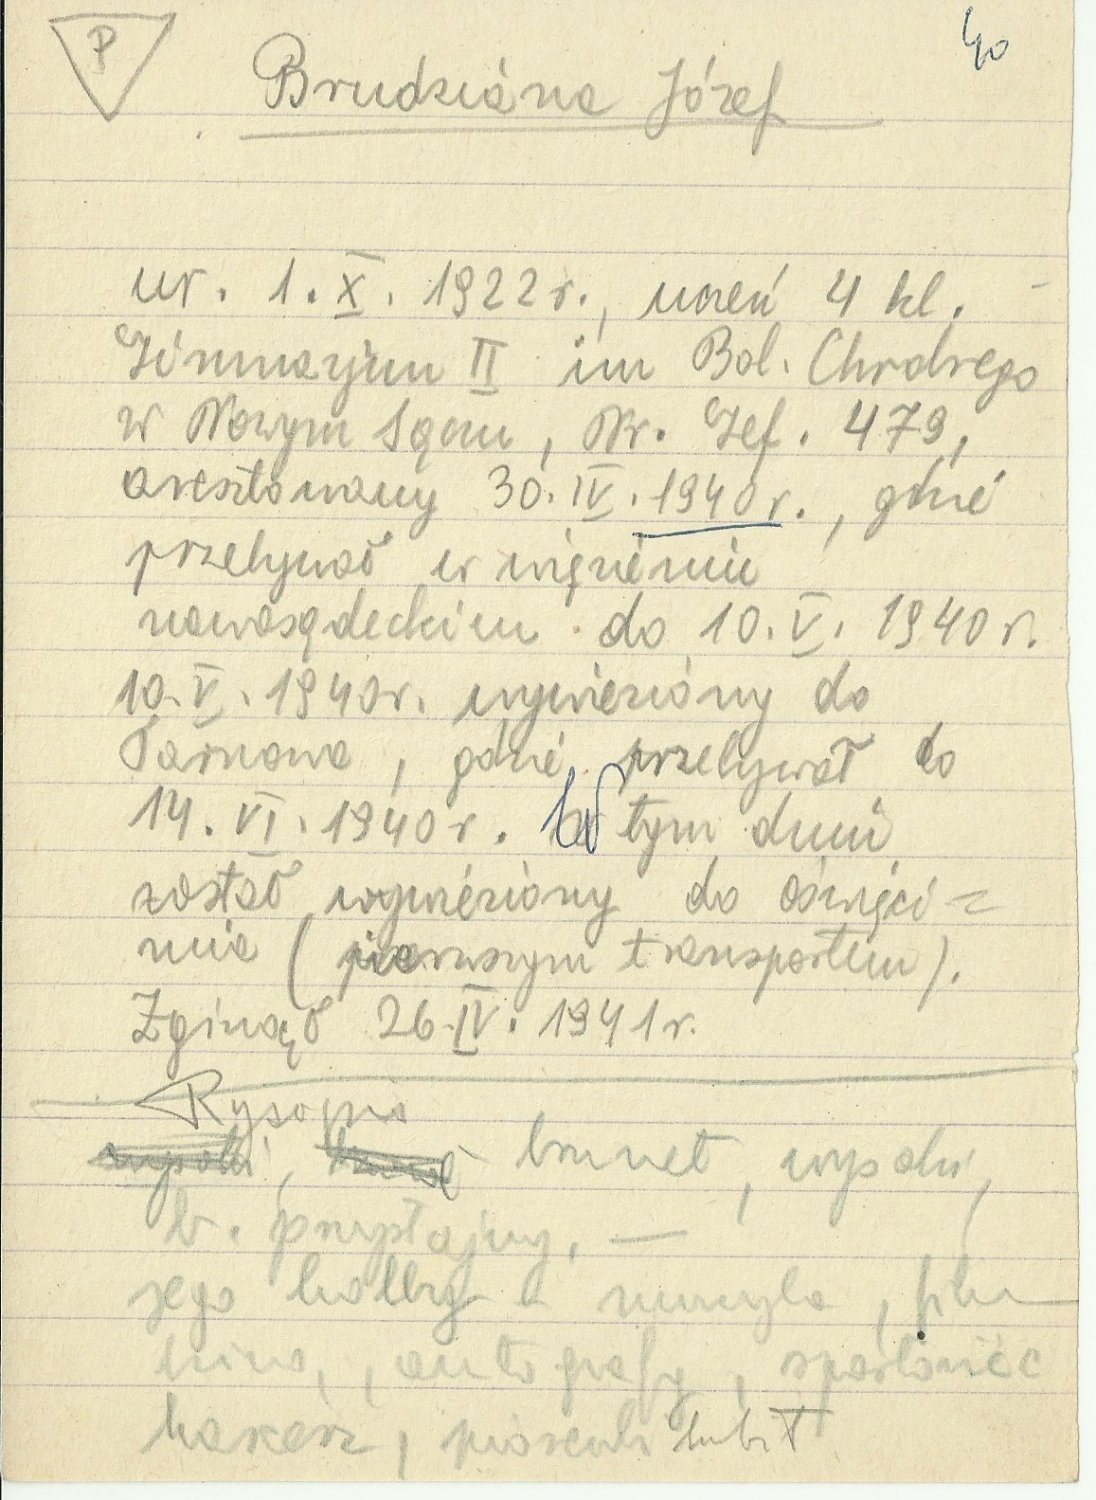 P
40
Brudziana Józef
ur. 1. X. 1922 r., uczeń 4 kl.
Gimnazjum II im Bol. Chrobrego
w Nowym Sączu, Nr. Gef. 479,
aresztowany 30. IV. 1940 r., gdzie
przebywał w więzieniu
nowosądeckim do 10. V. 1940 r.
10. V. 1940 r. wywieziony do
Tarnowa, gdzie przebywał do
14. VI. 1940 r. W tym dniu
został wywieziony do Oświęci=
mia (pierwszym transportem).
Zginął 26. IV. 1941 r.
Rysopis
wysoki, brunet, wysoki,
b. przystojny, —
jego hobby - muzyka,
autografy, sportowiec
harcerz, piosenki lubił